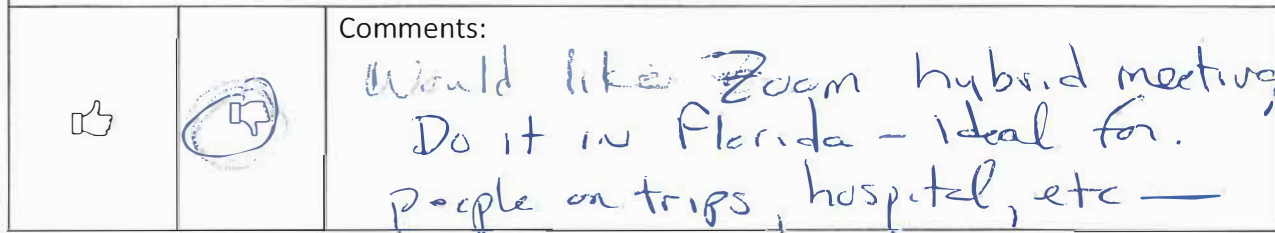 Comments:
Would like Zoom hybrid meeting
Do it in Florida – ideal for.
people on trips, hospital, etc —